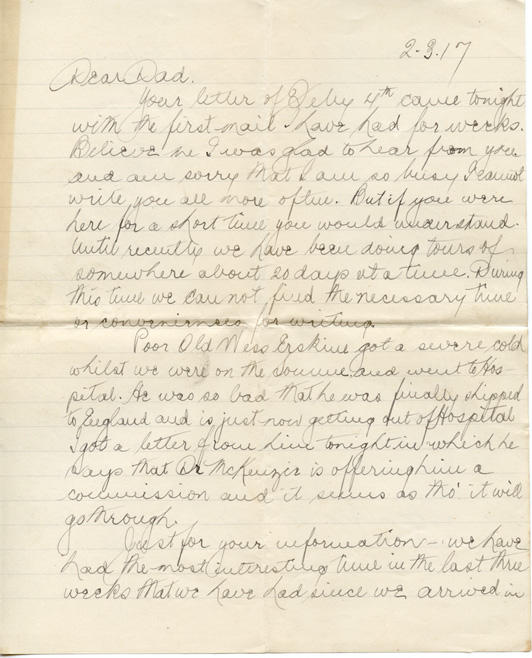 2-3.17
Dear Dad.
Your letter of Feby 4th came tonight
with the first mail I have had for weeks.
Believe me I was glad to hear from you
and am sorry that I am so busy I cannot
write you all more often. But if you were
here for a short time you would understand.
Until recently we have been doing tours of
somewhere about 20 days at a time. During
this time we can not find the necessary time
or conveniences for writing.
Poor Old Ness Erskine got a severe cold
whilst we were on the Somme, and went to Hos-
pital. He was so bad that he was finally shipped
to England and is just now getting out of Hospital
I got a letter from him tonight in which he
says that Dr McKenzie is offering him a
commission and it seems as tho' it will
go through.
Just for your information - we have
had the most interesting time in the last three
weeks that we have had since we arrived in